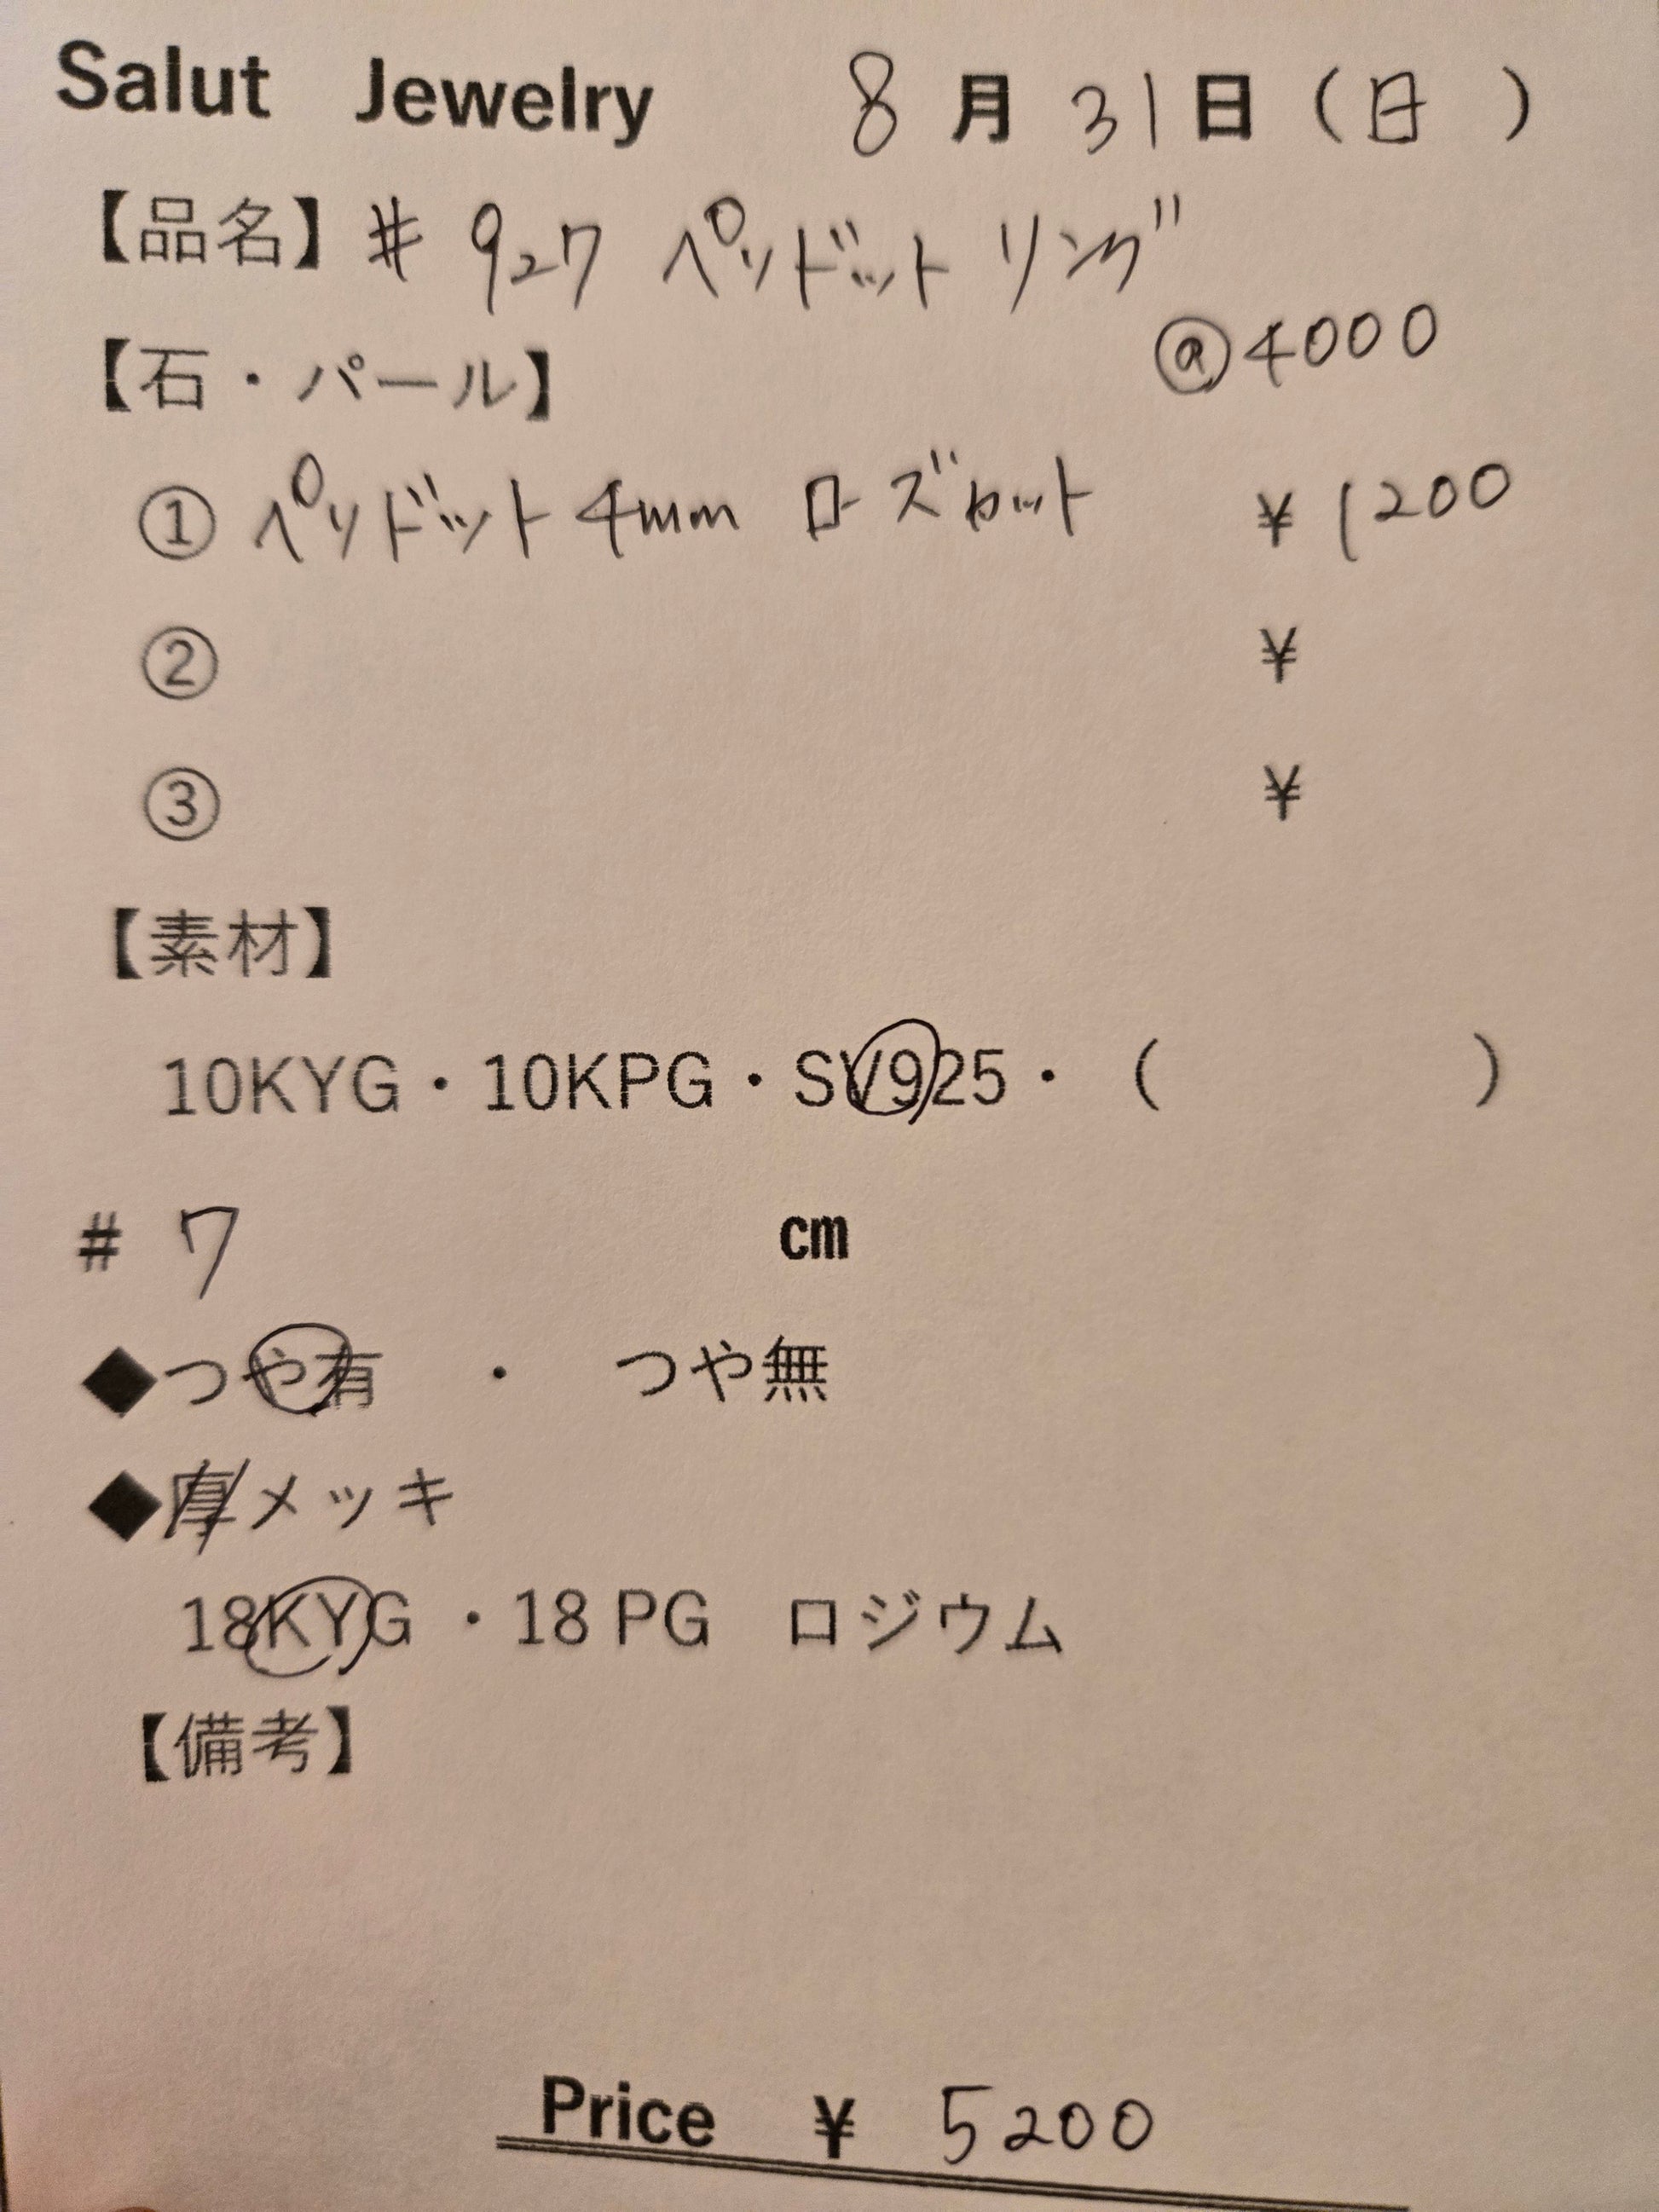 Salut Jewelry 8月31日(日)
【品名】# 927 ペリドット リング
@4000
【石・パール】
① ペリドット 4mm ローズカット ¥1200
② ¥
③ ¥
【素材】
10KYG・10KPG・SV925・( )
# 7 cm
◆つや有 ・ つや無
◆厚メッキ
18KYG ・18 PG ロジウム
【備考】
Price ¥ 5200